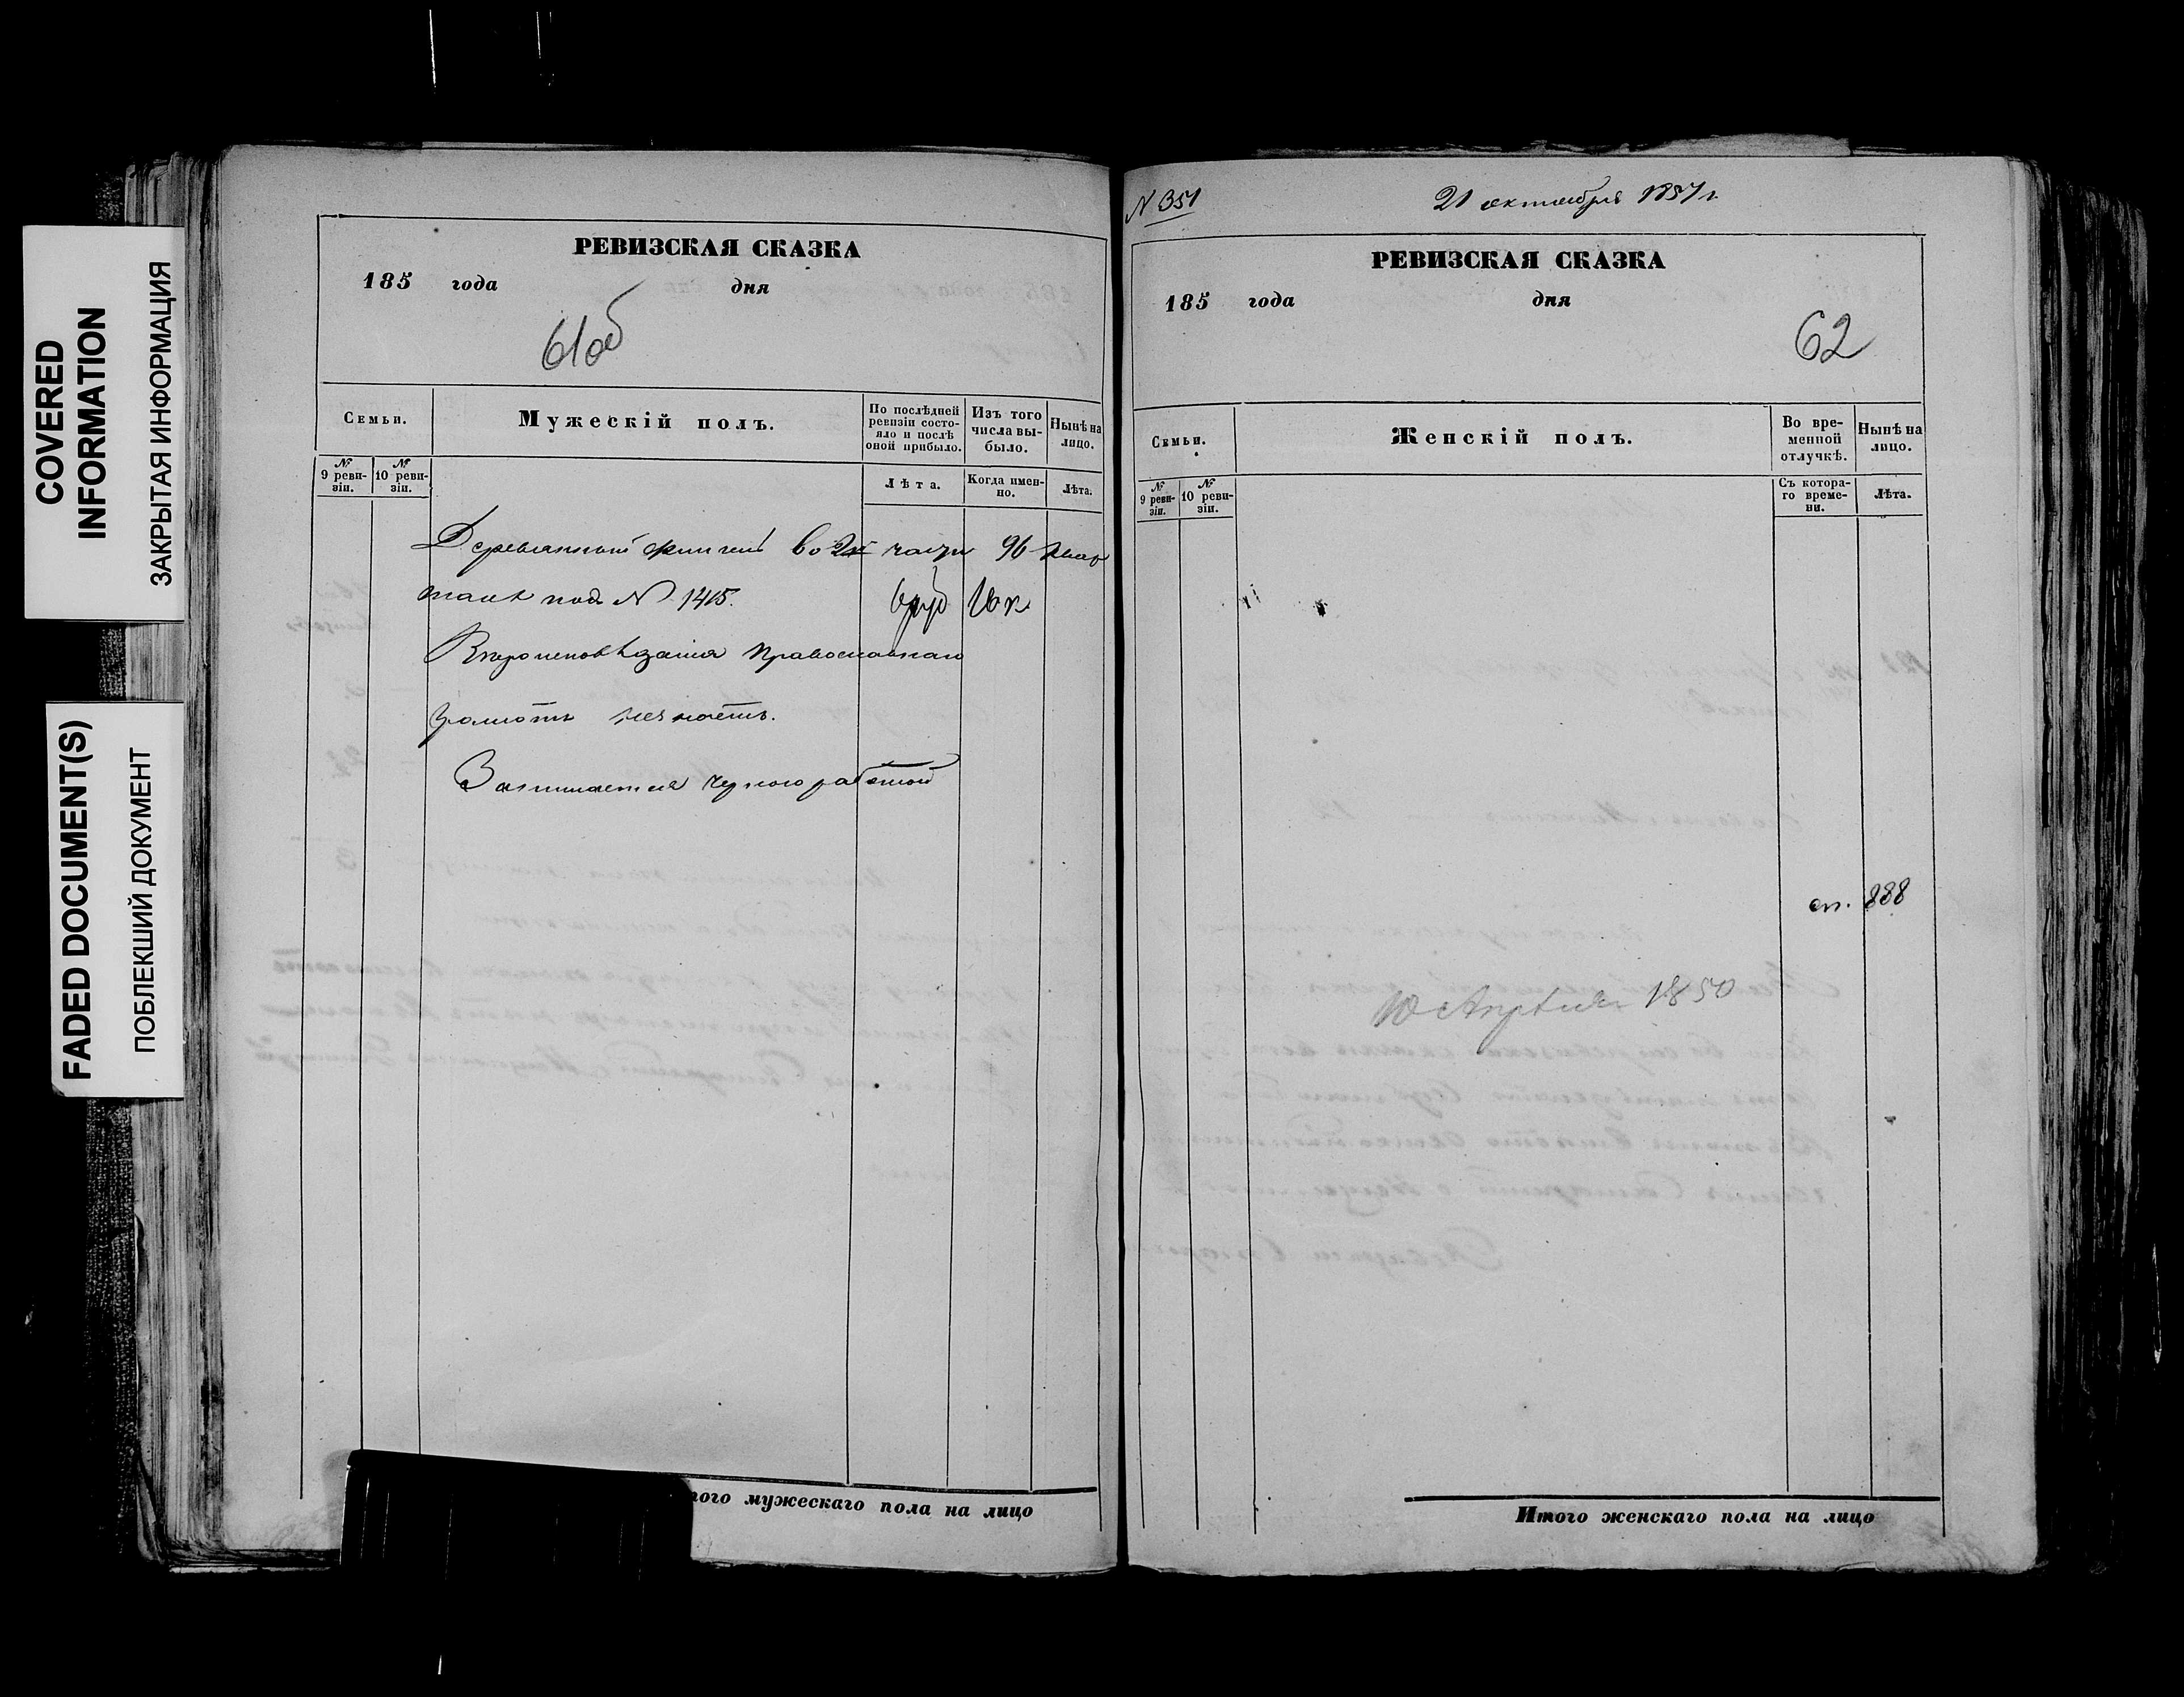 COVERED
INFORMATION
ЗАКРЫТАЯ ИНФОРМАЦИЯ
FADED DOCUMENT(S)
ПОБЛЕКШИЙ ДОКУМЕНТ
РЕВИЗСКАЯ СКАЗКА
185 года дня
61об
Семьи.
Мужескій полъ.
По послѣдней
ревизіи состо-
яло и послѣ
оной прибыло.
Изъ того
числа вы-
было.
Нынѣ на
лицо.
№
9 реви-
зіи.
№
10 реви-
зіи.
Лѣта.
Когда имен-
но.
Лѣта.
Деревянный во 2й части 96 квар
талѣ под N 1415. 6 руб 16 к
Вѣроисповѣданія православнаго
грамотѣ незнаетъ.
Занимается чернороработой
того мужескаго пола на лицо
N 351
21 октября 1857 г.
РЕВИЗСКАЯ СКАЗКА
185 года дня
62
Семьи.
Женскій полъ.
Во вре-
менной
отлучкѣ.
Нынѣ на
лицо.
№
9 реви-
зіи.
№
10 реви-
зіи.
Съ котора-
го време-
ни.
Лѣта.
ст. 888
10 Апрѣля 1850
Итого женскаго пола на лицо